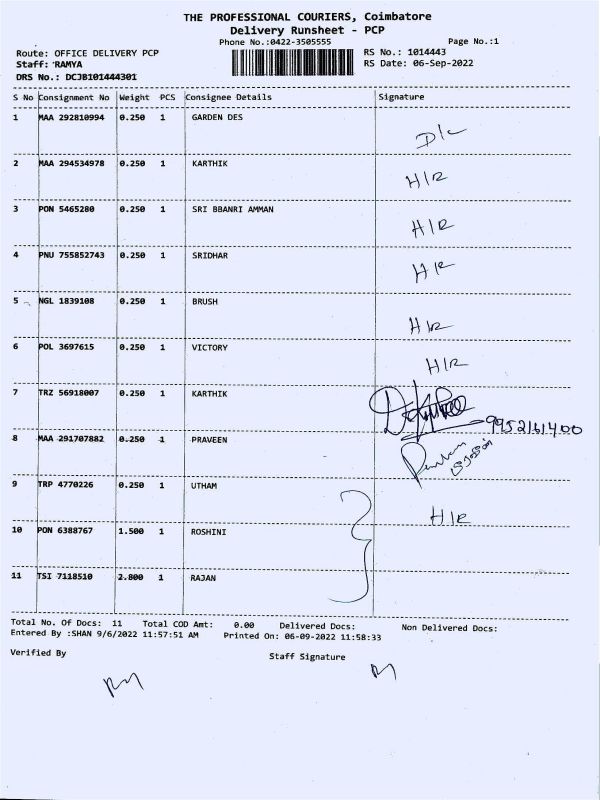 THE PROFESSIONAL COURIERS, Coimbatore
Delivery Runsheet - PCP
Phone No.:0422-3505555
Page No.:1
Route: OFFICE DELIVERY PCP
RS No.: 1014443
Staff: RAMYA
RS Date: 06-Sep-2022
DRS No.: DCJB101444301
S No Consignment No Weight PCS Consignee Details Signature
1 MAA 292810994 0.250 1 GARDEN DES D/C
2 MAA 294534978 0.250 1 KARTHIK H/R
3 PON 5465280 0.250 1 SRI BBANRI AMMAN H/R
4 PNU 755852743 0.250 1 SRIDHAR H/R
5 NGL 1839108 0.250 1 BRUSH H/R
6 POL 3697615 0.250 1 VICTORY H/R
7 TRZ 56918007 0.250 1 KARTHIK
9952161400
8 MAA 291707882 0.250 1 PRAVEEN
9 TRP 4770226 0.250 1 UTHAM H/R
10 PON 6388767 1.500 1 ROSHINI
11 TSI 7118510 2.800 1 RAJAN
Total No. Of Docs: 11 Total COD Amt: 0.00 Delivered Docs: Non Delivered Docs:
Entered By :SHAN 9/6/2022 11:57:51 AM Printed On: 06-09-2022 11:58:33
Verified By Staff Signature